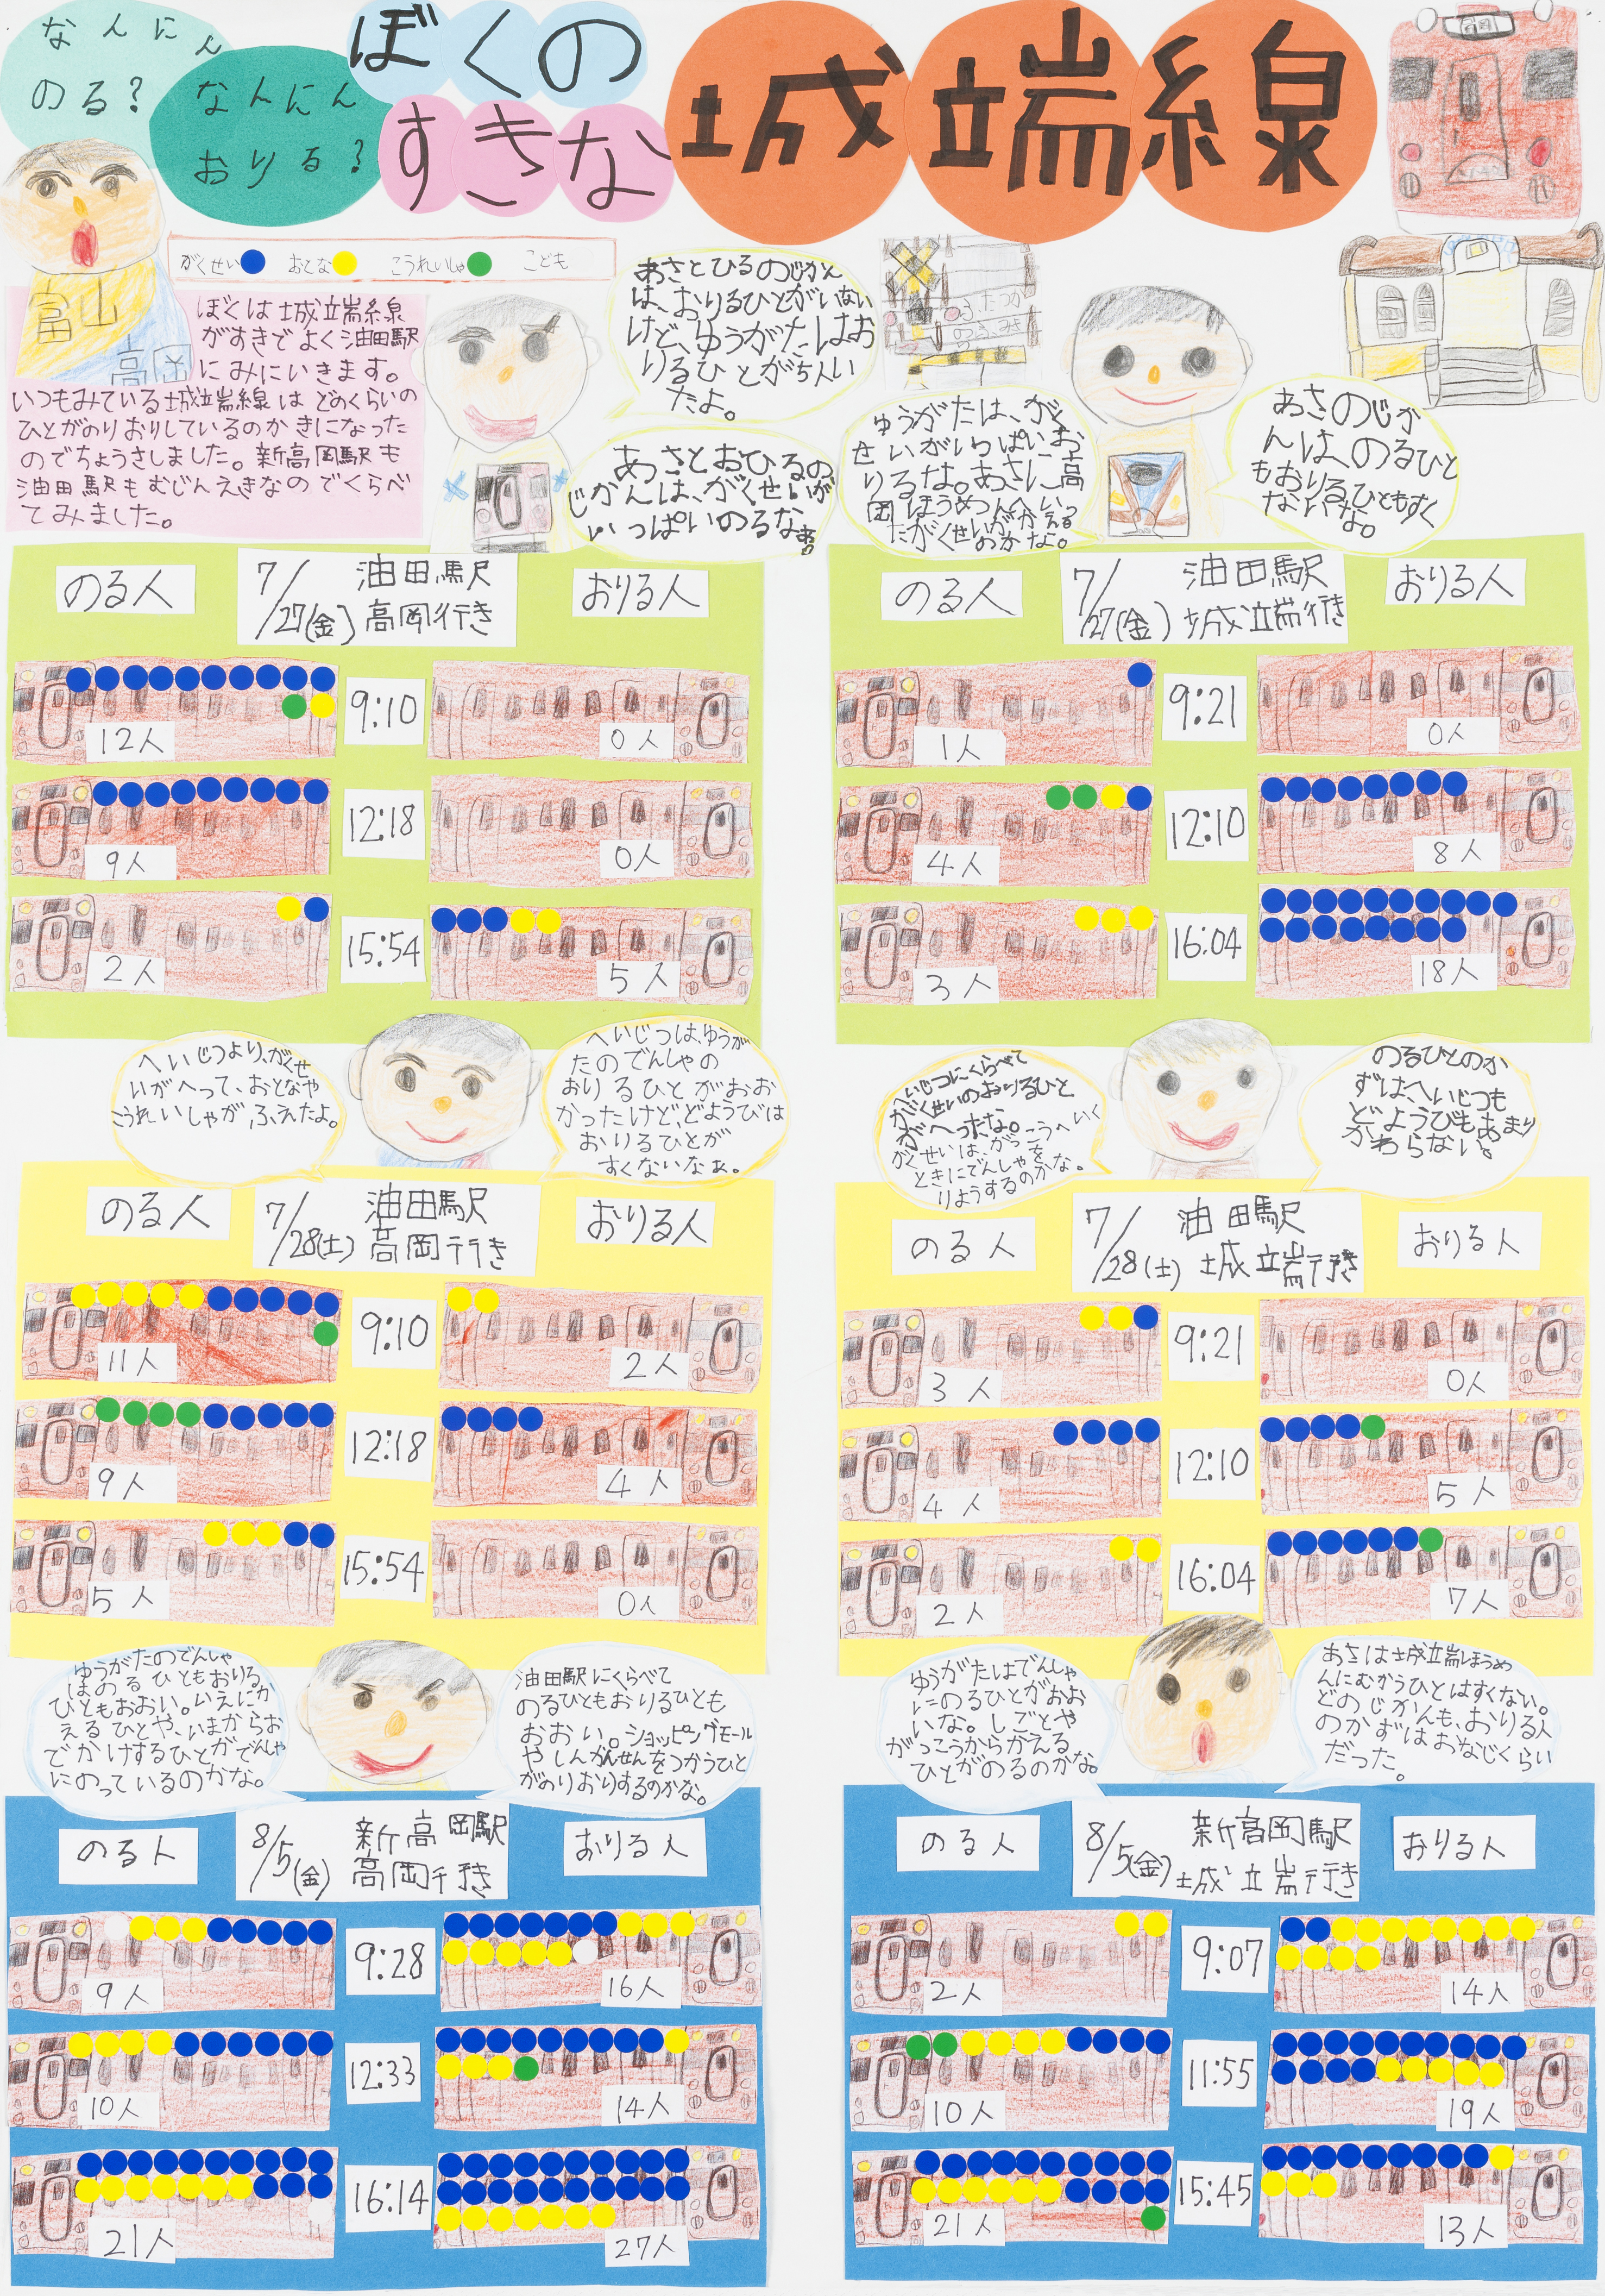 なんにん
のる?
なんにん
おりる?
ぼくの
すきな
城端線
がくせい おとな こうれいしゃ こども
富山
高岡
ぼくは城端線
がすきでよく油田駅
にみにいきます。
いつもみている城端線はどのくらいの
ひとがのりおりしているのかきになった
のでちょうさしました。新高岡駅も
油田駅もむじんえきなのでくらべ
てみました。
あさとひるのじかん
は、おりるひとがいない
けど、ゆうがたはお
りるひとが5人い
たよ。
あさとおひるの
じかんは、がくせいが
いっぱいのるなぁ。
ゆうがたは、がく
せいがいっぱいお
りるな。あさに高
岡ほうめんへいっ
たがくせいがかえる
のかな。
あさのじか
んは、のるひと
もおりるひともすく
ないな。
のる人
7/27(金)
油田駅
高岡行き
おりる人
12人
9:10
0人
9人
12:18
0人
2人
15:54
5人
のる人
7/27(金)
油田駅
城端行き
おりる人
1人
9:21
0人
4人
12:10
8人
3人
16:04
18人
へいじつより、がくせ
いがへって、おとなや
こうれいしゃが、ふえたよ。
へいじつは、ゆうが
たのでんしゃの
おりるひとがおお
かったけど、どようびは
おりるひとが
すくないなぁ。
へいじつにくらべて
がくせいのおりるひと
がへったな。
がくせいは、がっこうへいく
ときにでんしゃを
りようするのかな。
のるひとのか
ずは、へいじつも
どようびもあまり
かわらない。
のる人
7/28(土)
油田駅
高岡行き
おりる人
11人
9:10
2人
9人
12:18
4人
5人
15:54
0人
のる人
7/28(土)
油田駅
城端行き
おりる人
3人
9:21
0人
4人
12:10
5人
2人
16:04
7人
ゆうがたのでんしゃ
はのるひともおりる
ひともおおい。いえにか
えるひとや、いまからお
でかけするひとがでんしゃ
にのっているのかな。
油田駅にくらべて
のるひともおりるひとも
おおい。ショッピングモール
やしんかんせんをつかうひと
がのりおりするのかな。
ゆうがたはでんしゃ
にのるひとがおお
いな。しごとや
がっこうからかえる
ひとがのるのかな。
あさは城端ほうめ
んにむかうひとはすくない。
どのじかんも、おりる人
のかずはおなじくらい
だった。
のる人
8/5(金)
新高岡駅
高岡行き
おりる人
9人
9:28
16人
10人
12:33
14人
21人
16:14
27人
のる人
8/5(金)
新高岡駅
城端行き
おりる人
2人
9:07
14人
10人
11:55
19人
21人
15:45
13人